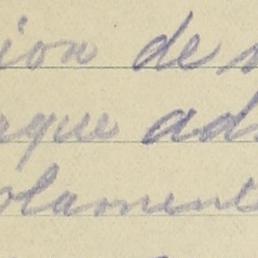 ion de
aque ad
olament